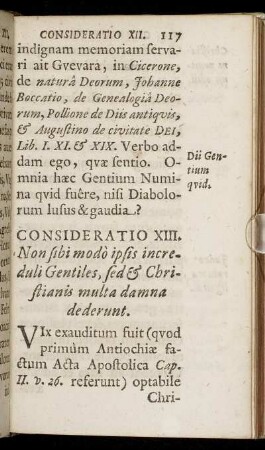 CONSIDERATIO XII. 117
indignam memoriam serva-
ri ait Gvevara, in Cicerone,
de naturâ Deorum, Johanne
Boccatio, de Genealogiâ Deo-
rum, Pollione de Diis antiqvis,
& Augustino de civitate DEI,
Lib. I. XI. & XIX. Verbo ad-
dam ego, qvæ sentio. O-
mnia hæc Gentium Numi-
na qvid fuêre, nisi Diabolo-
rum lusus & gaudia?
Dii Gen-
tium
qvid.
CONSIDERATIO XIII.
Non sibi modò ipsis incre-
duli Gentiles, sed & Chri-
stianis multa damna
dederunt.
VIx exauditum fuit (qvod
primùm Antiochiæ fa-
ctum Acta Apostolica Cap.
II. v. 26. referunt) optabile
Chri-